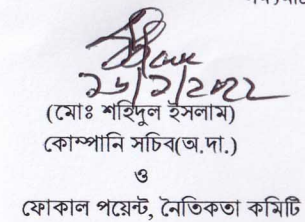 ২৬/৭/২০২২
(মোঃ শহিদুল ইসলাম)
কোম্পানি সচিব(অ.দা.)
ও
ফোকাল পয়েন্ট, নৈতিকতা কমিটি